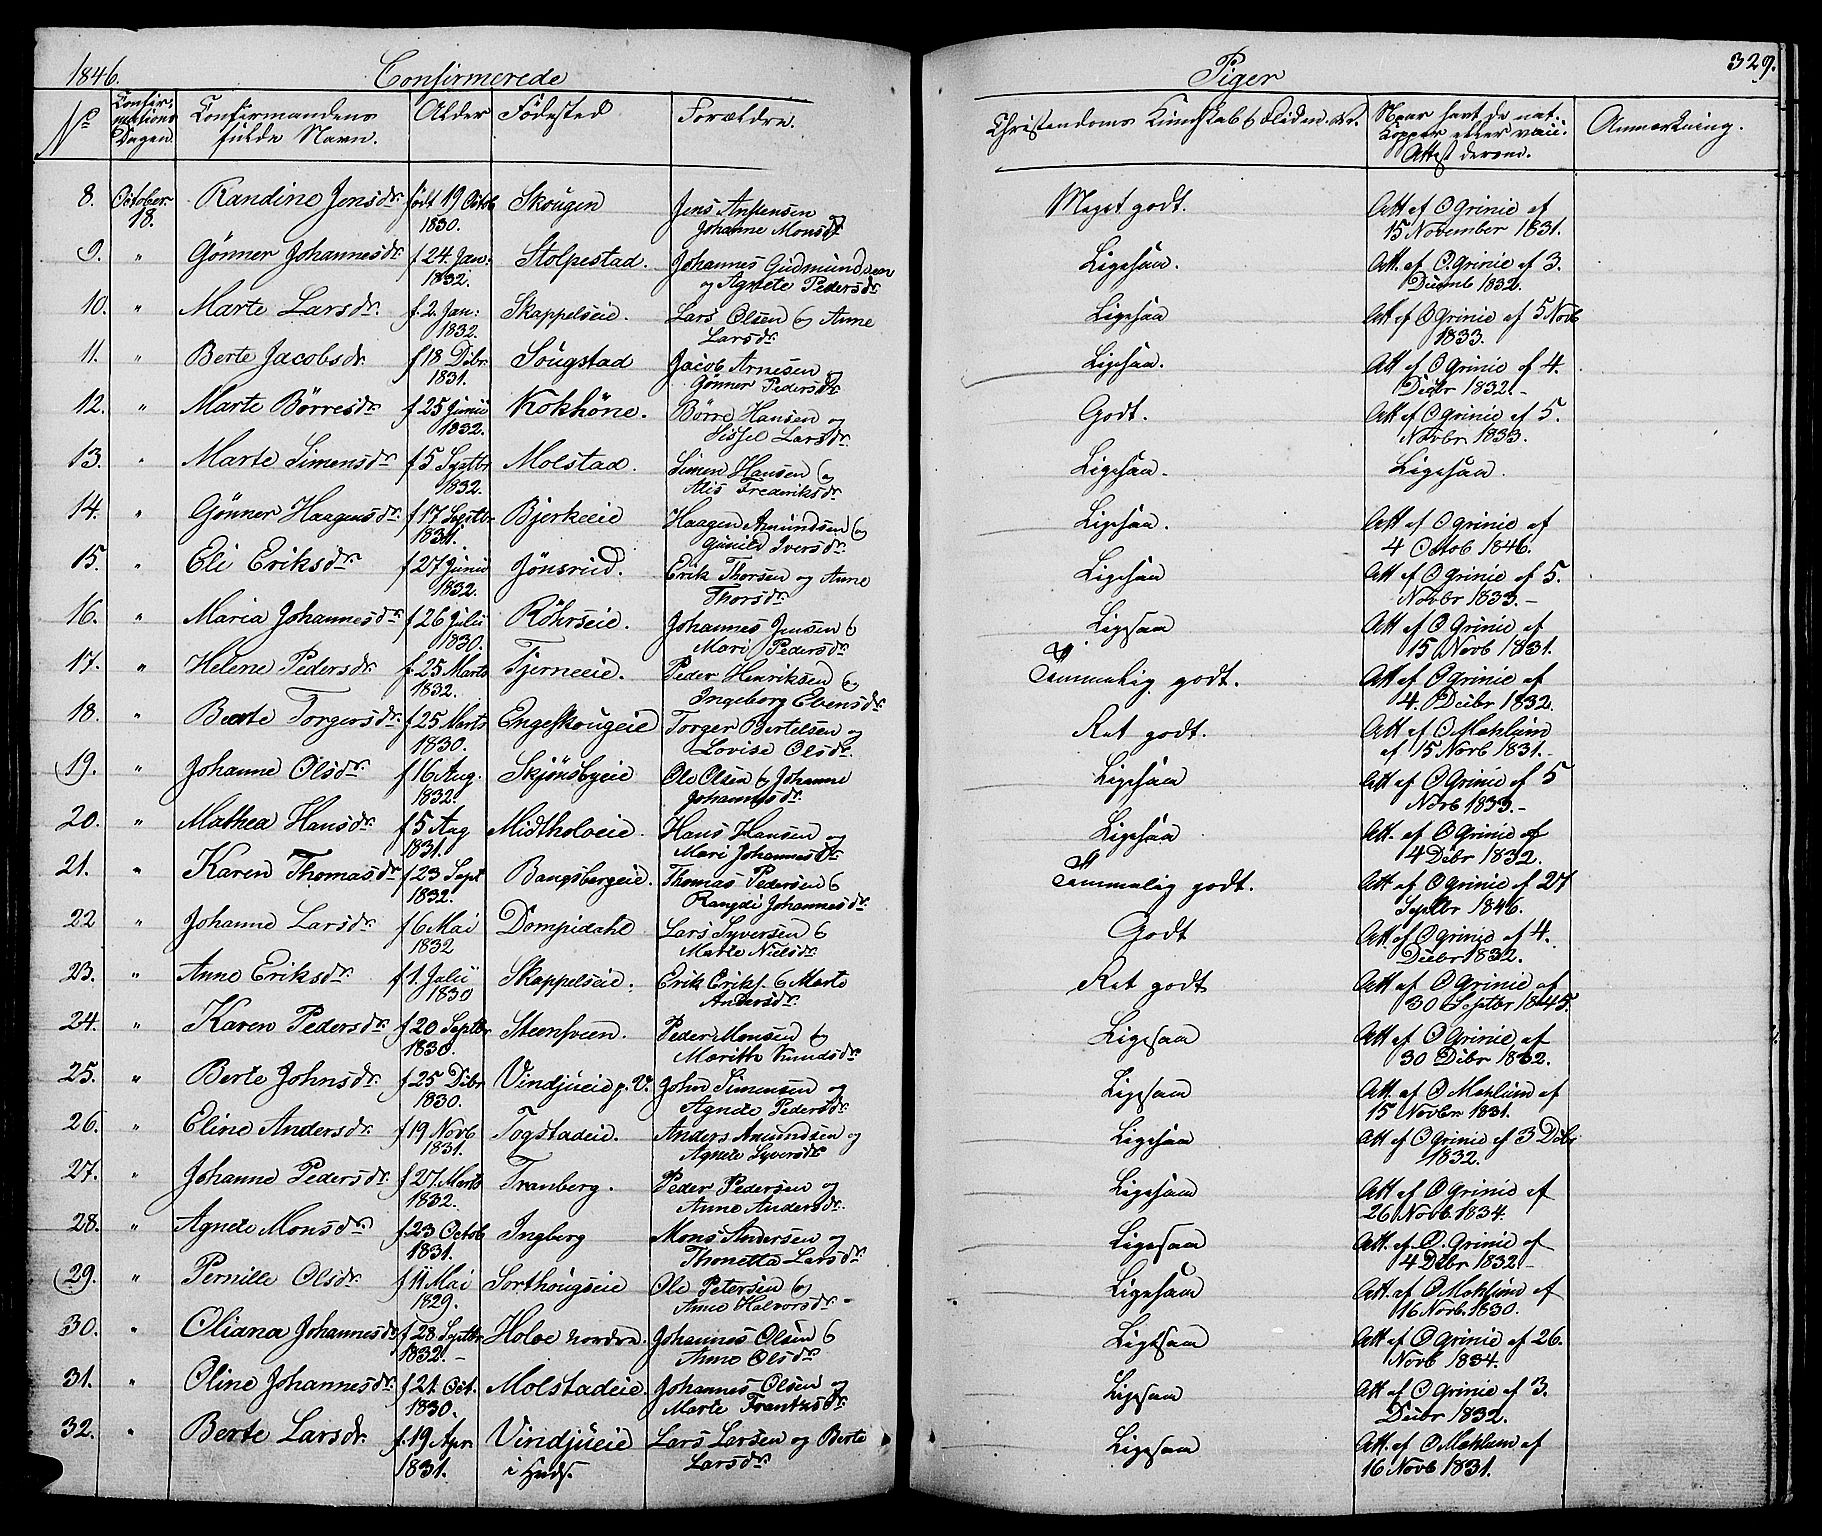 1846. Confirmerede Piger 329.
No Confir- mations Dagen. Confirmandens fulde Navn. Alder Födested Forældre. Christendoms Kundskab & Fliden. Naar havt de nat. Kopper eller vacc. Attest derom. Anmerkning.
8. October 18. Randine Jensdr. födt 19 Octob 1830. Skougen Jens Johanne Monsdr Meget godt. Att af O Grinie af 15 November 1831.
9. " Gönner Johannesdr. f 24. Jan. 1832. Stolpestad. Johannes Gudmundsen og Agnete Pedersdr Ligesaa. Att. af O. Grinie af 3. Decemb 1832.
10. " Marte Larsdr. f. 2. Jan: 1832. Skappelseie. Lars Olsen og Anne Larsdr. Ligesaa Att af O Grinie af 5 Novb 1833.
11. " Berte Jacobsdr f 18 Dcbr 1831. Sougstad Jacob Arnesen og Gönner Pedersdr Ligesaa. Att af O Grinie af 4. Dcbr 1832.-
12. " Marte Börresdr. f 25 Junii 1832. Kokhöne. Börre Hansen og Sissel Larsdr. Godt. Att af O Grinie af 5. Novbr 1833.
13. " Marte Simensdr. f 5 Septbr. 1832. Molstad. Simen Hansen og Alis Frederiksdr. Ligesaa. Ligesaa.
14. " Gönner Haagensdr. f 17 Septbr. 1831. Bjerkeeie Haagen Amundsen og Gunild Iversdr. Ligesaa. Att af O Grinie af 4 Octob 1846.
15. " Eli Eriksdr. f 27 Junii 1832. Jönsrud. Erik Thorsen og Anne Thorsdr. Ligesaa Att af O Grinie af 5. Novbr 1833.-
16. " Maria Johannesdr. f 26 Julii 1830. Röhrseie. Johannes Jensen og Mari Pedersdr. Ligesaa Att af O Grinie af 15 Novb 1831.
17. " Helene Pedersdr. f. 25 Marts 1832. Tjerneeie. Peder Henriksen og Ingeborg Evensdr. Temmelig godt. Att af O Grinie af 4. Decbr 1832.
18. " Berte Torgersdr. f. 25 Marts 1830. Engeskougeie Torger Bertelsen og Lovise Olsdr. Ret godt. Att af O Mæhlum af 15 Novb 1831.-
19. " Johanne Olsdr. f 16 Aug. 1832. Skjönsbyeie Ole Olsen og Johanne Johannesdr. Ligesaa Att af O Grinie af 5 Novb 1833.-
20. " Mathea Hansdr. f 5 Aug 1831. Midtholveie. Hans Hansen og Mari Johannesdr. Ligesaa Att. af O Grinie af 4 Dcbr 1832.
21. " Karen Thomasdr. f 23 Sept 1832. Bangsbergeie. Thomas Pedersen og Rangdi Johannesdr. Temmelig godt. Att af O Grinie af 27 Septbr 1846.
22 " Johanne Larsdr. f 6 Mai 1832 Dompidahl Lars Syversen og Marte Nielsdr. Godt Att. af O Grinie af 4. Decbr 1832.
23. " Anne Eriksdr. f 1. Julii 1830 Skappelseie. Erik Eriks. og Marte Andersdr. Ret godt Att af O Grinie af 30 Septbr 1845.
24. " Karen Pedersdr. f 20 Septbr. 1830. Steensveen. Peder Monsen og Marithe Knudsdr. Ligesaa Att af O Grinie af 30 Dcbr 1832.
25. " Berte Johnsdr. f 25 Dcbr 1830. Vindjueie p. V. John Simensen og Agnete Pedersdr. Ligesaa Att. af O Mæhlum af 15 Novbr 1831.
26. " Eline Andersdr. f 19 Novb 1831. Togstadeie. Anders Amundsen og Agnete Syversdr Ligesaa Att af O Grinie af 3 Dcbr 1832.
27. " Johanne Pedersdr. f 27. Marts 1832. Tranberg. Peder Pedersen og Anne Andersdr. Ligesaa Att af O Grinie af 26 Novb. 1834.
28. " Agnete Monsdr. f. 23 Octob 1831. Ingberg Mons Andersen og Thonetta Larsdr Ligesaa Att. af O. Grinie af 4 Dcbr 1832-
29. " Pernille Olsdr. f 11 Mai 1829. Sorthougseie Ole Petersen og Anne Halvorsdr. Ligesaa Att. af O Mæhlum af 16 Novb. 1830.
30. " Oliana Johannesdr f. 28 Septbr 1832.- Holve nordre. Johannes Olsen og Anne Olsdr. Ligesaa Att af O Grinie af 26. Novb 1834.
31. " Oline Johannesdr. f. 21. Oct. 1830. Molstadeie. Johannes Olsen og Marte Frantzsdr. Ligesaa Att af O Grinie af 3. Decbr 1832.
32. " Berte Larsdr. f. 19 Apr. 1831. Vindjueie i Huds. Lars Larsen og Berte Larsdr. Ligesaa Att. af O Mæhlum af 16 Novb 1831.